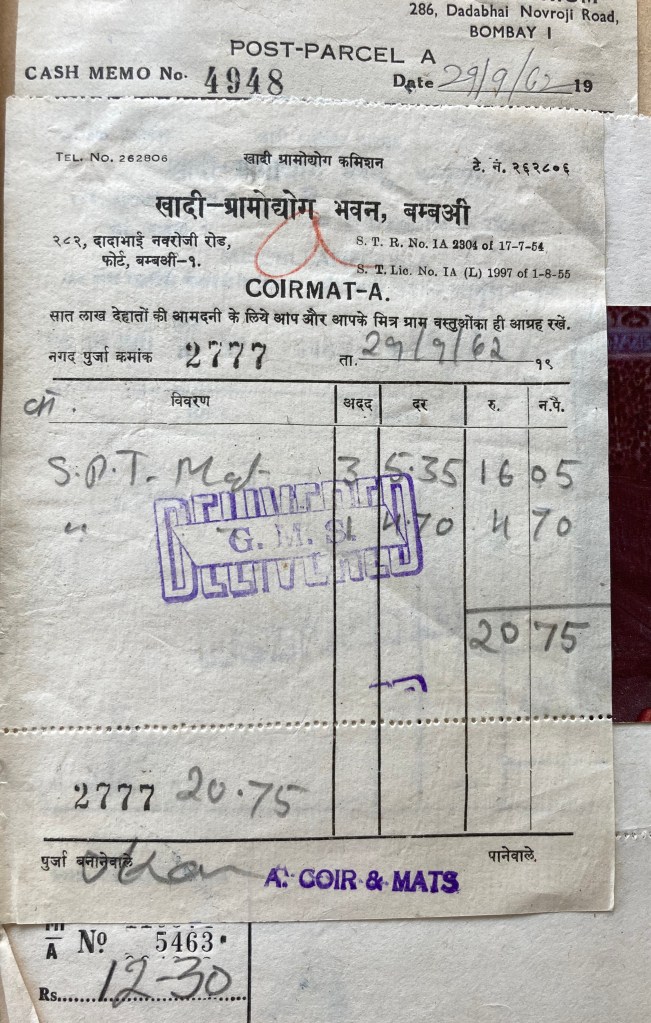 286, Dadabhai Novroji Road,
BOMBAY I
POST-PARCEL A
CASH MEMO No. 4948 Date 29/9/62 19
TEL. No. 262806 खादी ग्रामोद्योग कमिशन टे. नं. २६२८०६
खादी-ग्रामोद्योग भवन, बम्बअी
२८२, दादाभाई नवरोजी रोड, S. T. R. No. IA 2304 of 17-7-54
फोर्ट, बम्बअी-१. S. T. Lic. No. IA (L) 1997 of 1-8-55
COIRMAT-A.
सात लाख देहातों की आमदनी के लिये आप और आपके मित्र ग्राम वस्तुओंका ही आग्रह रखें.
नगद पुर्जा कमांक 2777 ता. 29/9/62 १९
विवरण अदद दर रु. न.पै.
S.P.T. Mat 3 5.35 16 05
" 1 4.70 4 70
G. M. S.
DELIVERED
20 75
2777 20.75
पुर्जा बनानेवाले पानेवाले.
A. COIR & MATS
A No 5463
Rs. 12-30